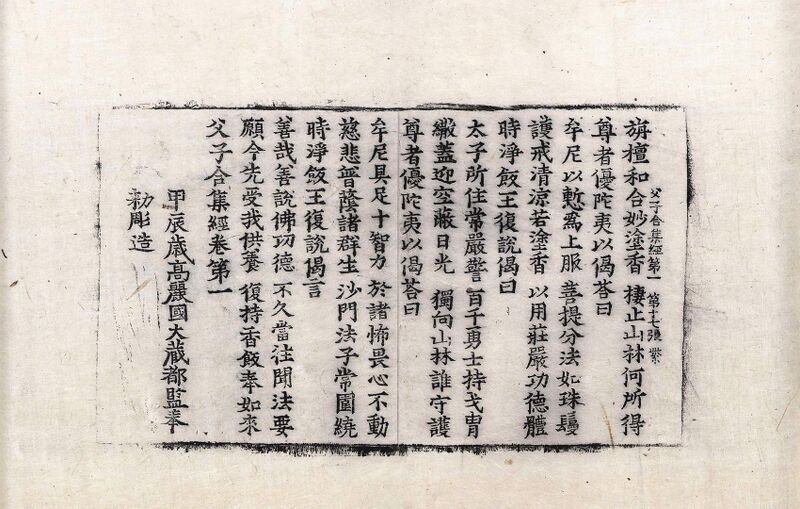 父子合集經第一 第十七張 繁
旃檀和合妙塗香 棲止山林何所得
尊者優陀夷以偈荅曰
牟尼以慙爲上服 菩提分法如珠鬘
護戒清涼若塗香 以用莊嚴功德體
時淨飯王復說偈曰
太子所住常嚴警 百千勇士持戈冑
繖蓋迎空蔽日光 獨向山林誰守護
尊者優陀夷以偈荅曰
牟尼具足十智力 於諸怖畏心不動
慈悲普蔭諸群生 沙門法子常圍繞
時淨飯王復說偈言
善哉善說佛功德 不久當往聞法要
願今先受我供養 復持香飯奉如來
父子合集經卷第一
甲辰歲高麗國大藏都監奉
勅彫造